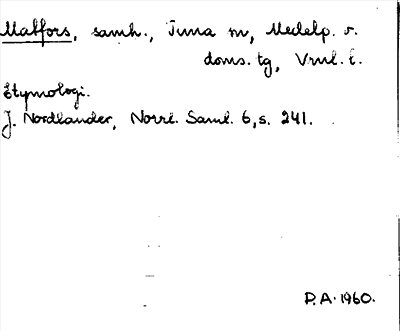 Matfors, samh., Tuna sn, Medelp. v.
doms. tg, Vrnl. l.
Etymologi.
J. Nordlander, Norrl. Saml. 6, s. 241.
P.A. 1960.